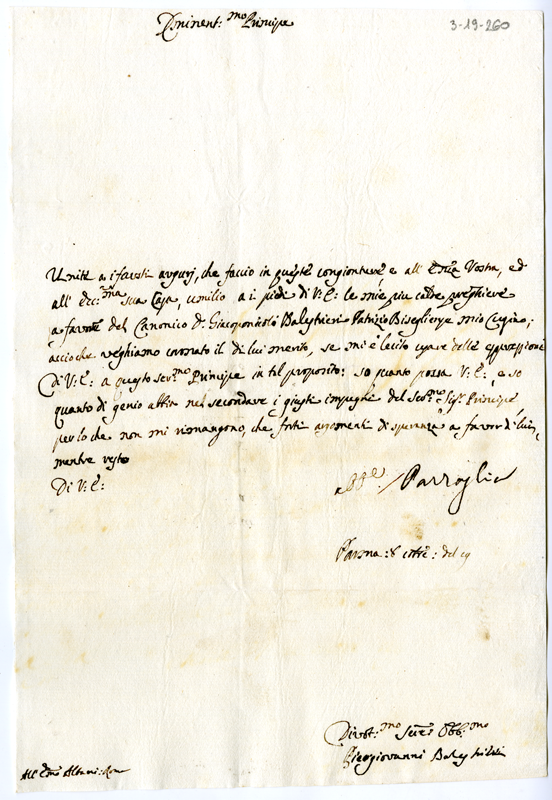 Eminent:mo Principe
3-19-260
Unite a i fausti augurj, che faccio in queste congionture e all' Em.za Vostra, ed
all' Ecc:ma sua Casa, umilio a i piedi di V: E: le mie piu calde preghiere
a favore del Canonico D. Giacomonicolò Balestrieri Patrizio Bisegliense mio Cugino;
acciochè veghiamo coronato il di lui merito, se mi è lecito usare delle espressioni
Di V: E: a questo Ser:mo Principe in tal proposito: so quanto possa V: E:, e so
quanto di genio abbia nel secondare i giusti impegni del Ser:mo Sig.r Principe
per lo che non mi rimangono, che forti argomenti di speranza a favor di lui,
mentre resto
Di V: E:
Parma: 8 del 19
Divot:mo Serv.e Obb:mo
Piergiovanni Balestrieri
All' Em.o Albani: Roma